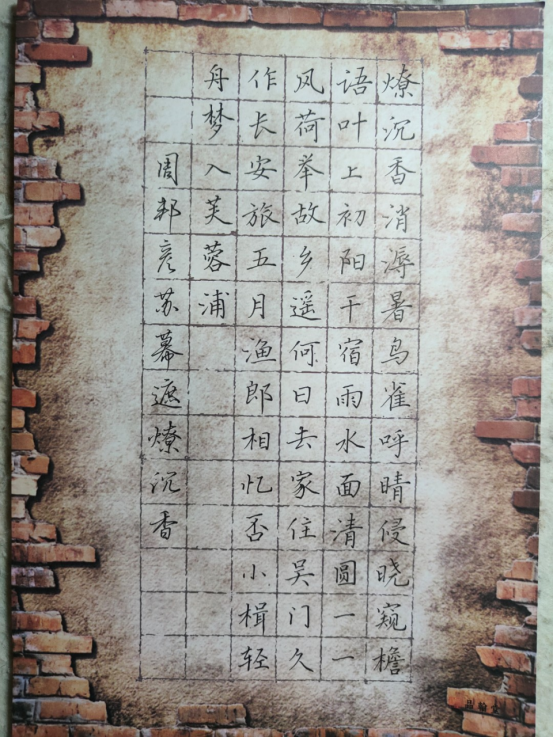 燎沉香消溽暑鸟雀呼晴侵晓窥檐
语叶上初阳干宿雨水面清圆一一
风荷举故乡遥何日去家住吴门久
作长安旅五月渔郎相忆否小楫轻
舟梦入芙蓉浦
周邦彦苏幕遮燎沉香